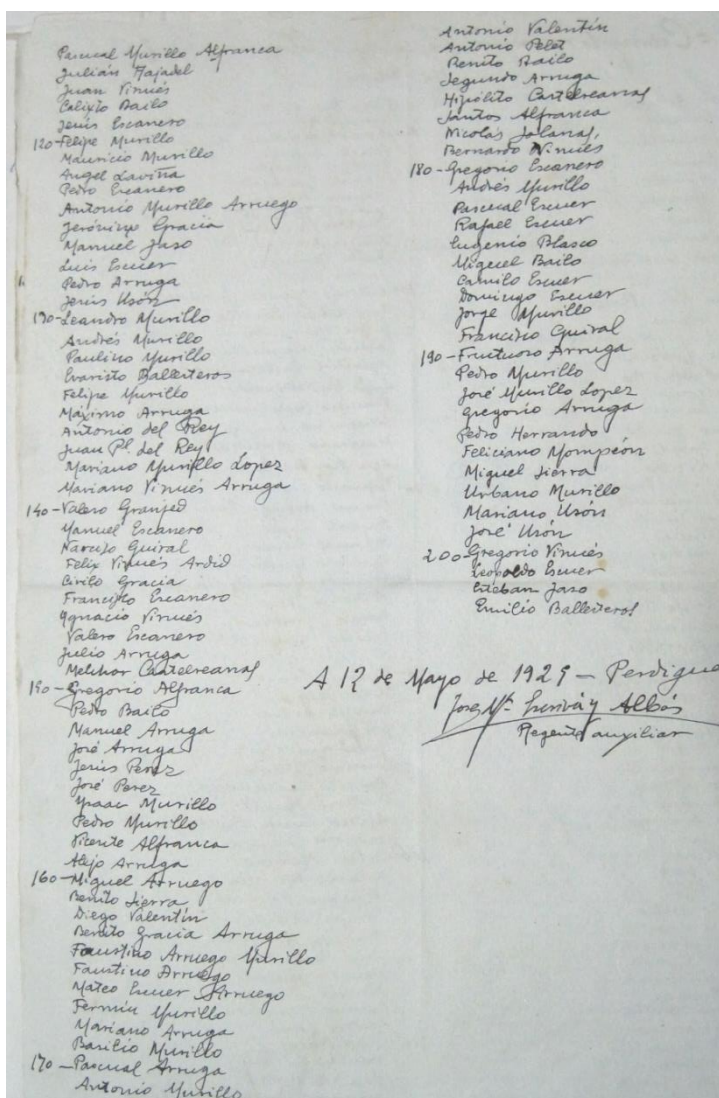 Pascual Murillo Alfranca
Julián Majadel
Juan Vinués
Calixto Bailo
Jesús Escanero
120-Felipe Murillo
Mauricio Murillo
Angel Laviña
Pedro Escanero
Antonio Murillo Arruego
Jerónimo Gracia
Manuel Jaso
Luis Escuer
Pedro Arruga
Jesús Usón
130-Leandro Murillo
Andrés Murillo
Paulino Murillo
Evaristo Ballesteros
Felipe Murillo
Máximo Arruga
Antonio del Rey
Juan Pl. del Rey
Mariano Murillo Lopez
Mariano Vinués Arruga
140-Valero Granjed
Manuel Escanero
Narciso Guiral
Felix Vinués Ardid
Cirilo Gracia
Francisco Escanero
Ygnacio Vinués
Valero Escanero
Julio Arruga
Melchor Castelreanas
150-Gregorio Alfranca
Pedro Bailo
Manuel Arruga
José Arruga
Jesús Perez
José Perez
Ysaac Murillo
Pedro Murillo
Vicente Alfranca
Alejo Arruga
160-Miguel Arruego
Benito Sierra
Diego Valentín
Benito Gracia Arruga
Faustino Arruego Murillo
Faustino Arruego
Mateo Escuer Arruego
Fermín Murillo
Mariano Arruga
Basilio Murillo
170-Pascual Arruga
Antonio Murillo
Antonio Valentín
Antonio Pelet
Benito Bailo
Segundo Arruga
Hipólito Castelreanas
Santos Alfranca
Nicolás Solanas,
Bernardo Vinués
180-Gregorio Escanero
Andrés Murillo
Pascual Escuer
Rafael Escuer
Eugenio Blasco
Miguel Bailo
Camilo Escuer
Domingo Escuer
Jorge Murillo
Francisco Guiral
190-Fructuoso Arruga
Pedro Murillo
José Murillo Lopez
Gregorio Arruga
Pedro Herrando
Feliciano Mompeón
Miguel Sierra
Urbano Murillo
Mariano Usón
José Usón
200-Gregorio Vinués
Leopoldo Escuer
Esteban Jaso
Emilio Ballesteros
A 12 de Mayo de 1925 - Perdigue
José Mª Escrivá y Albás
Regente auxiliar